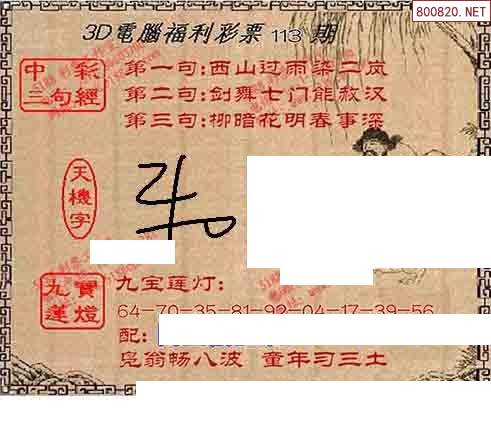 800820.NET
3D電腦福利彩票 113 期
中彩三句經
第一句:西山过雨染二岚
第二句:剑舞七门能赦汉
第三句:柳暗花明春事深
天機字
九寶蓮燈
九宝莲灯:
64-70-35-81-92-04-17-39-56
配:
鬼翁畅八波 童年习三土